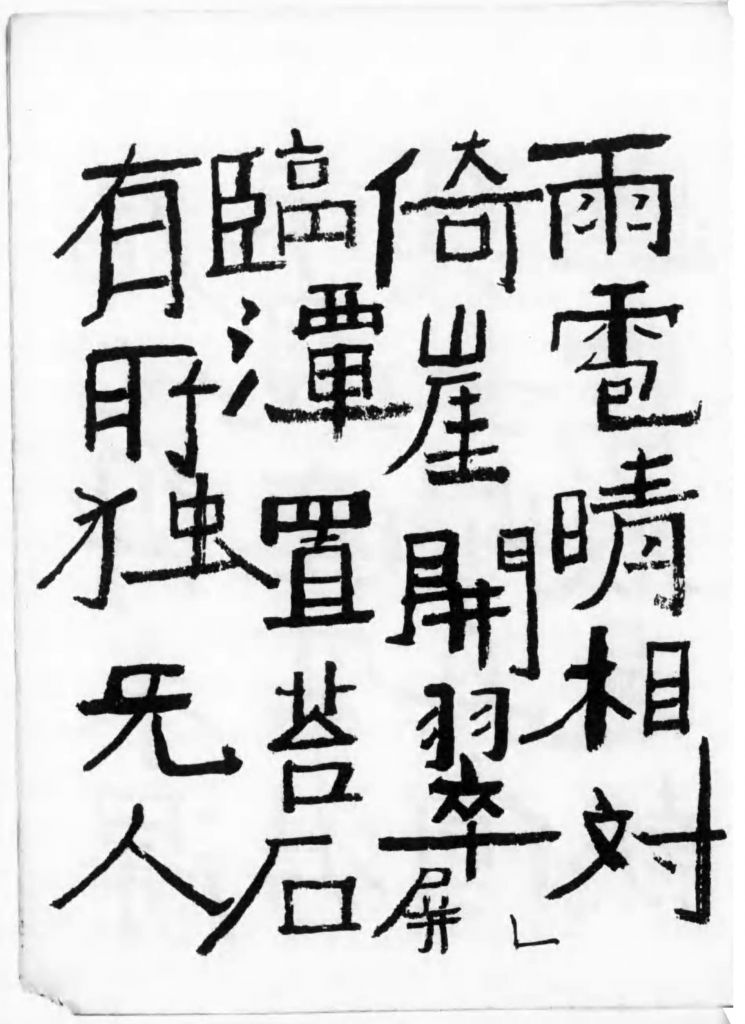 雨雹晴相対
倚崖開翠屏
臨潭置苔石
有独旡人